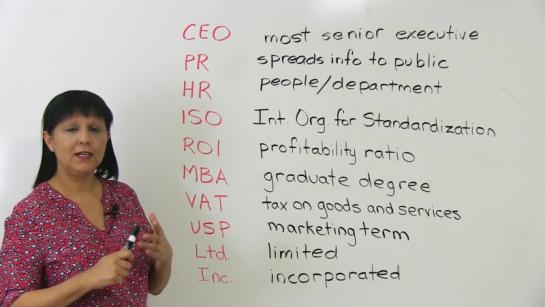 CEO most senior executive
PR spreads info to public
HR people/department
ISO Int. Org. for Standardization
ROI profitability ratio
MBA graduate degree
VAT tax on goods and services
USP marketing term
Ltd. limited
Inc. incorporated